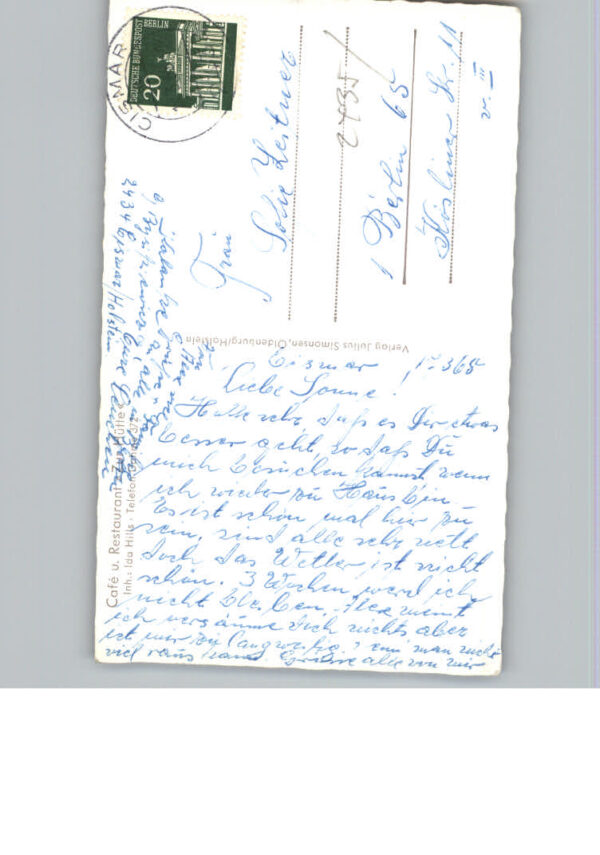 CISMAR
DEUTSCHE BUNDESPOST
BERLIN
20
2435
Frau
Sofie Leitner
1 Berlin 65
Kösliner Str. 11
v. III
Verlag Julius Simonsen, Oldenburg/Holstein
Café u. Restaurant "Zur Hütte"
Inh.: Ida Hills · Telefon
Cismar
Liebe Sonne!
Hoffe sehr, daß es Dir etwas
besser geht, so daß Du
mich besuchen kannst wenn
ich wieder zu Haus bin.
Es ist schön mal hier zu
sein, sind alle sehr nett
doch das Wetter ist nicht
schön. 3 Wochen werd ich
nicht bleiben. meint
ich versäume doch nichts aber
ist mir zu langweilig, wenn man nicht
viel raus kann. Grüsse alle von mir
2434 Cismar/Holstein
Eure